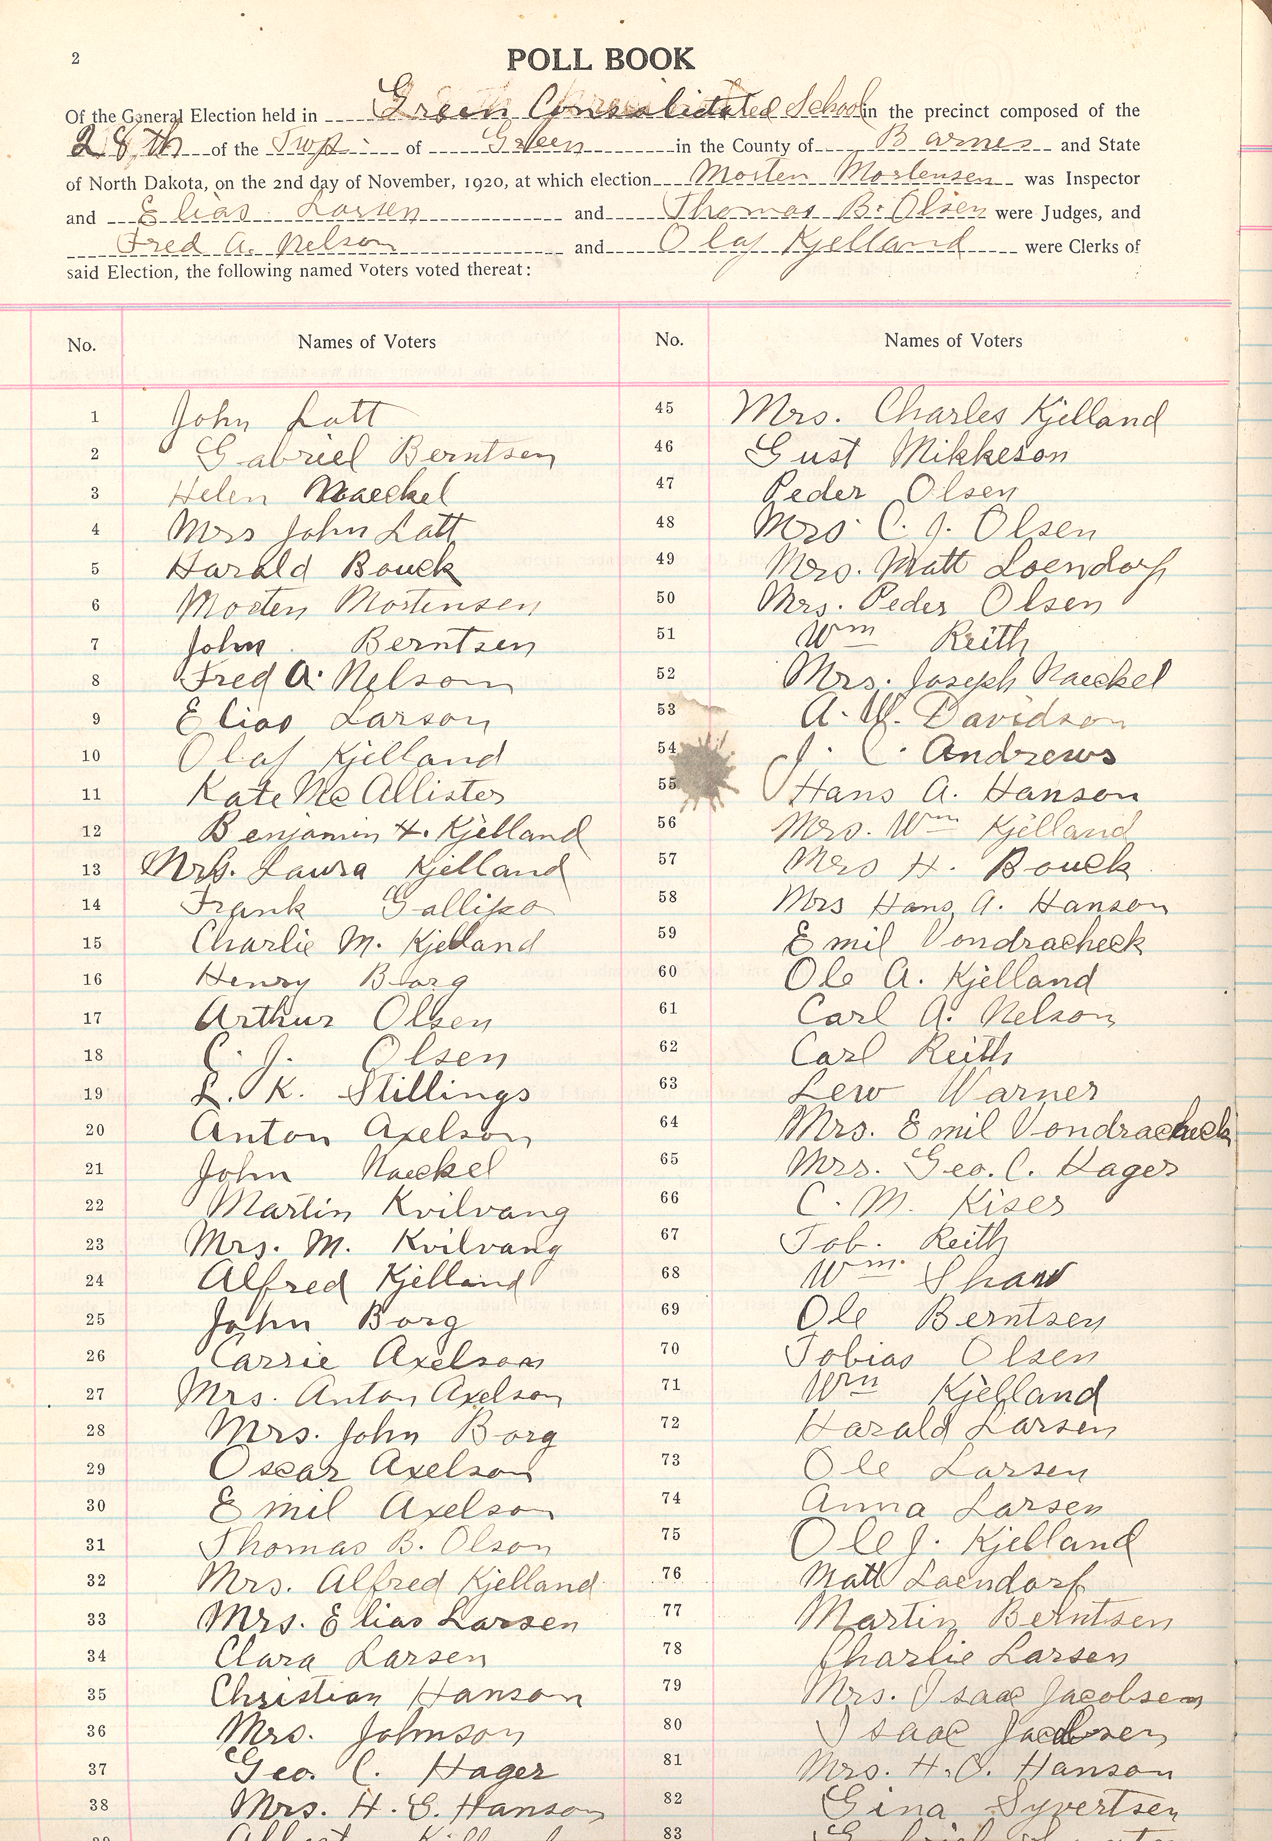 2
POLL BOOK
Of the General Election held in Green Consolidated School in the precinct composed of the
28th of the Twp. of Green in the County of Barnes and State
of North Dakota, on the 2nd day of November, 1920, at which election Morten Mortensen was Inspector
and Elias Larsen and Thomas B. Olsen were Judges, and
Fred A. Nelson and Olaf Kjelland were Clerks of
said Election, the following named Voters voted thereat:
No. Names of Voters No. Names of Voters
1 John Latt 45 Mrs. Charles Kjelland
2 Gabriel Berntsen 46 Gust Mikkeson
3 Helen Naeckel 47 Peder Olsen
4 Mrs John Latt 48 Mrs. C. J. Olsen
5 Harald Bouck 49 Mrs. Matt Loendorf
6 Morten Mortensen 50 Mrs. Peder Olsen
7 John Berntsen 51 Wm Reith
8 Fred A. Nelson 52 Mrs. Joseph Naeckel
9 Elias Larson 53 A. W. Davidson
10 Olaf Kjelland 54 J. C. Andrews
11 Kate McAllister 55 Hans A. Hanson
12 Benjamin H. Kjelland 56 Mrs. Wm Kjelland
13 Mrs. Laura Kjelland 57 Mrs H. Bouck
14 Frank Gallipo 58 Mrs Hans A. Hanson
15 Charlie M. Kjelland 59 Emil Vondracheck
16 Henry Borg 60 Ole A. Kjelland
17 Arthur Olsen 61 Carl A. Nelson
18 C. J. Olsen 62 Carl Reith
19 L. K. Stillings 63 Lew Warner
20 Anton Axelson 64 Mrs. Emil Vondracheck
21 John Naeckel 65 Mrs. Geo. C. Hager
22 Martin Kvilvang 66 C. M. Kiser
23 Mrs. M. Kvilvang 67 Tob. Reith
24 Alfred Kjelland 68 Wm. Shaw
25 John Borg 69 Ole Berntsen
26 Carrie Axelson 70 Tobias Olsen
27 Mrs. Anton Axelson 71 Wm Kjelland
28 Mrs. John Borg 72 Harald Larsen
29 Oscar Axelson 73 Ole Larsen
30 Emil Axelson 74 Anna Larsen
31 Thomas B. Olson 75 Ole J. Kjelland
32 Mrs. Alfred Kjelland 76 Matt Loendorf
33 Mrs. Elias Larsen 77 Martin Berntsen
34 Clara Larsen 78 Charlie Larsen
35 Christian Hanson 79 Mrs. Isaac Jacobsen
36 Mrs. Johnson 80 Isaac Jacobsen
37 Geo. C. Hager 81 Mrs. H. O. Hanson
38 Mrs. H. G. Hanson 82 Gina Syvertsen
39 83